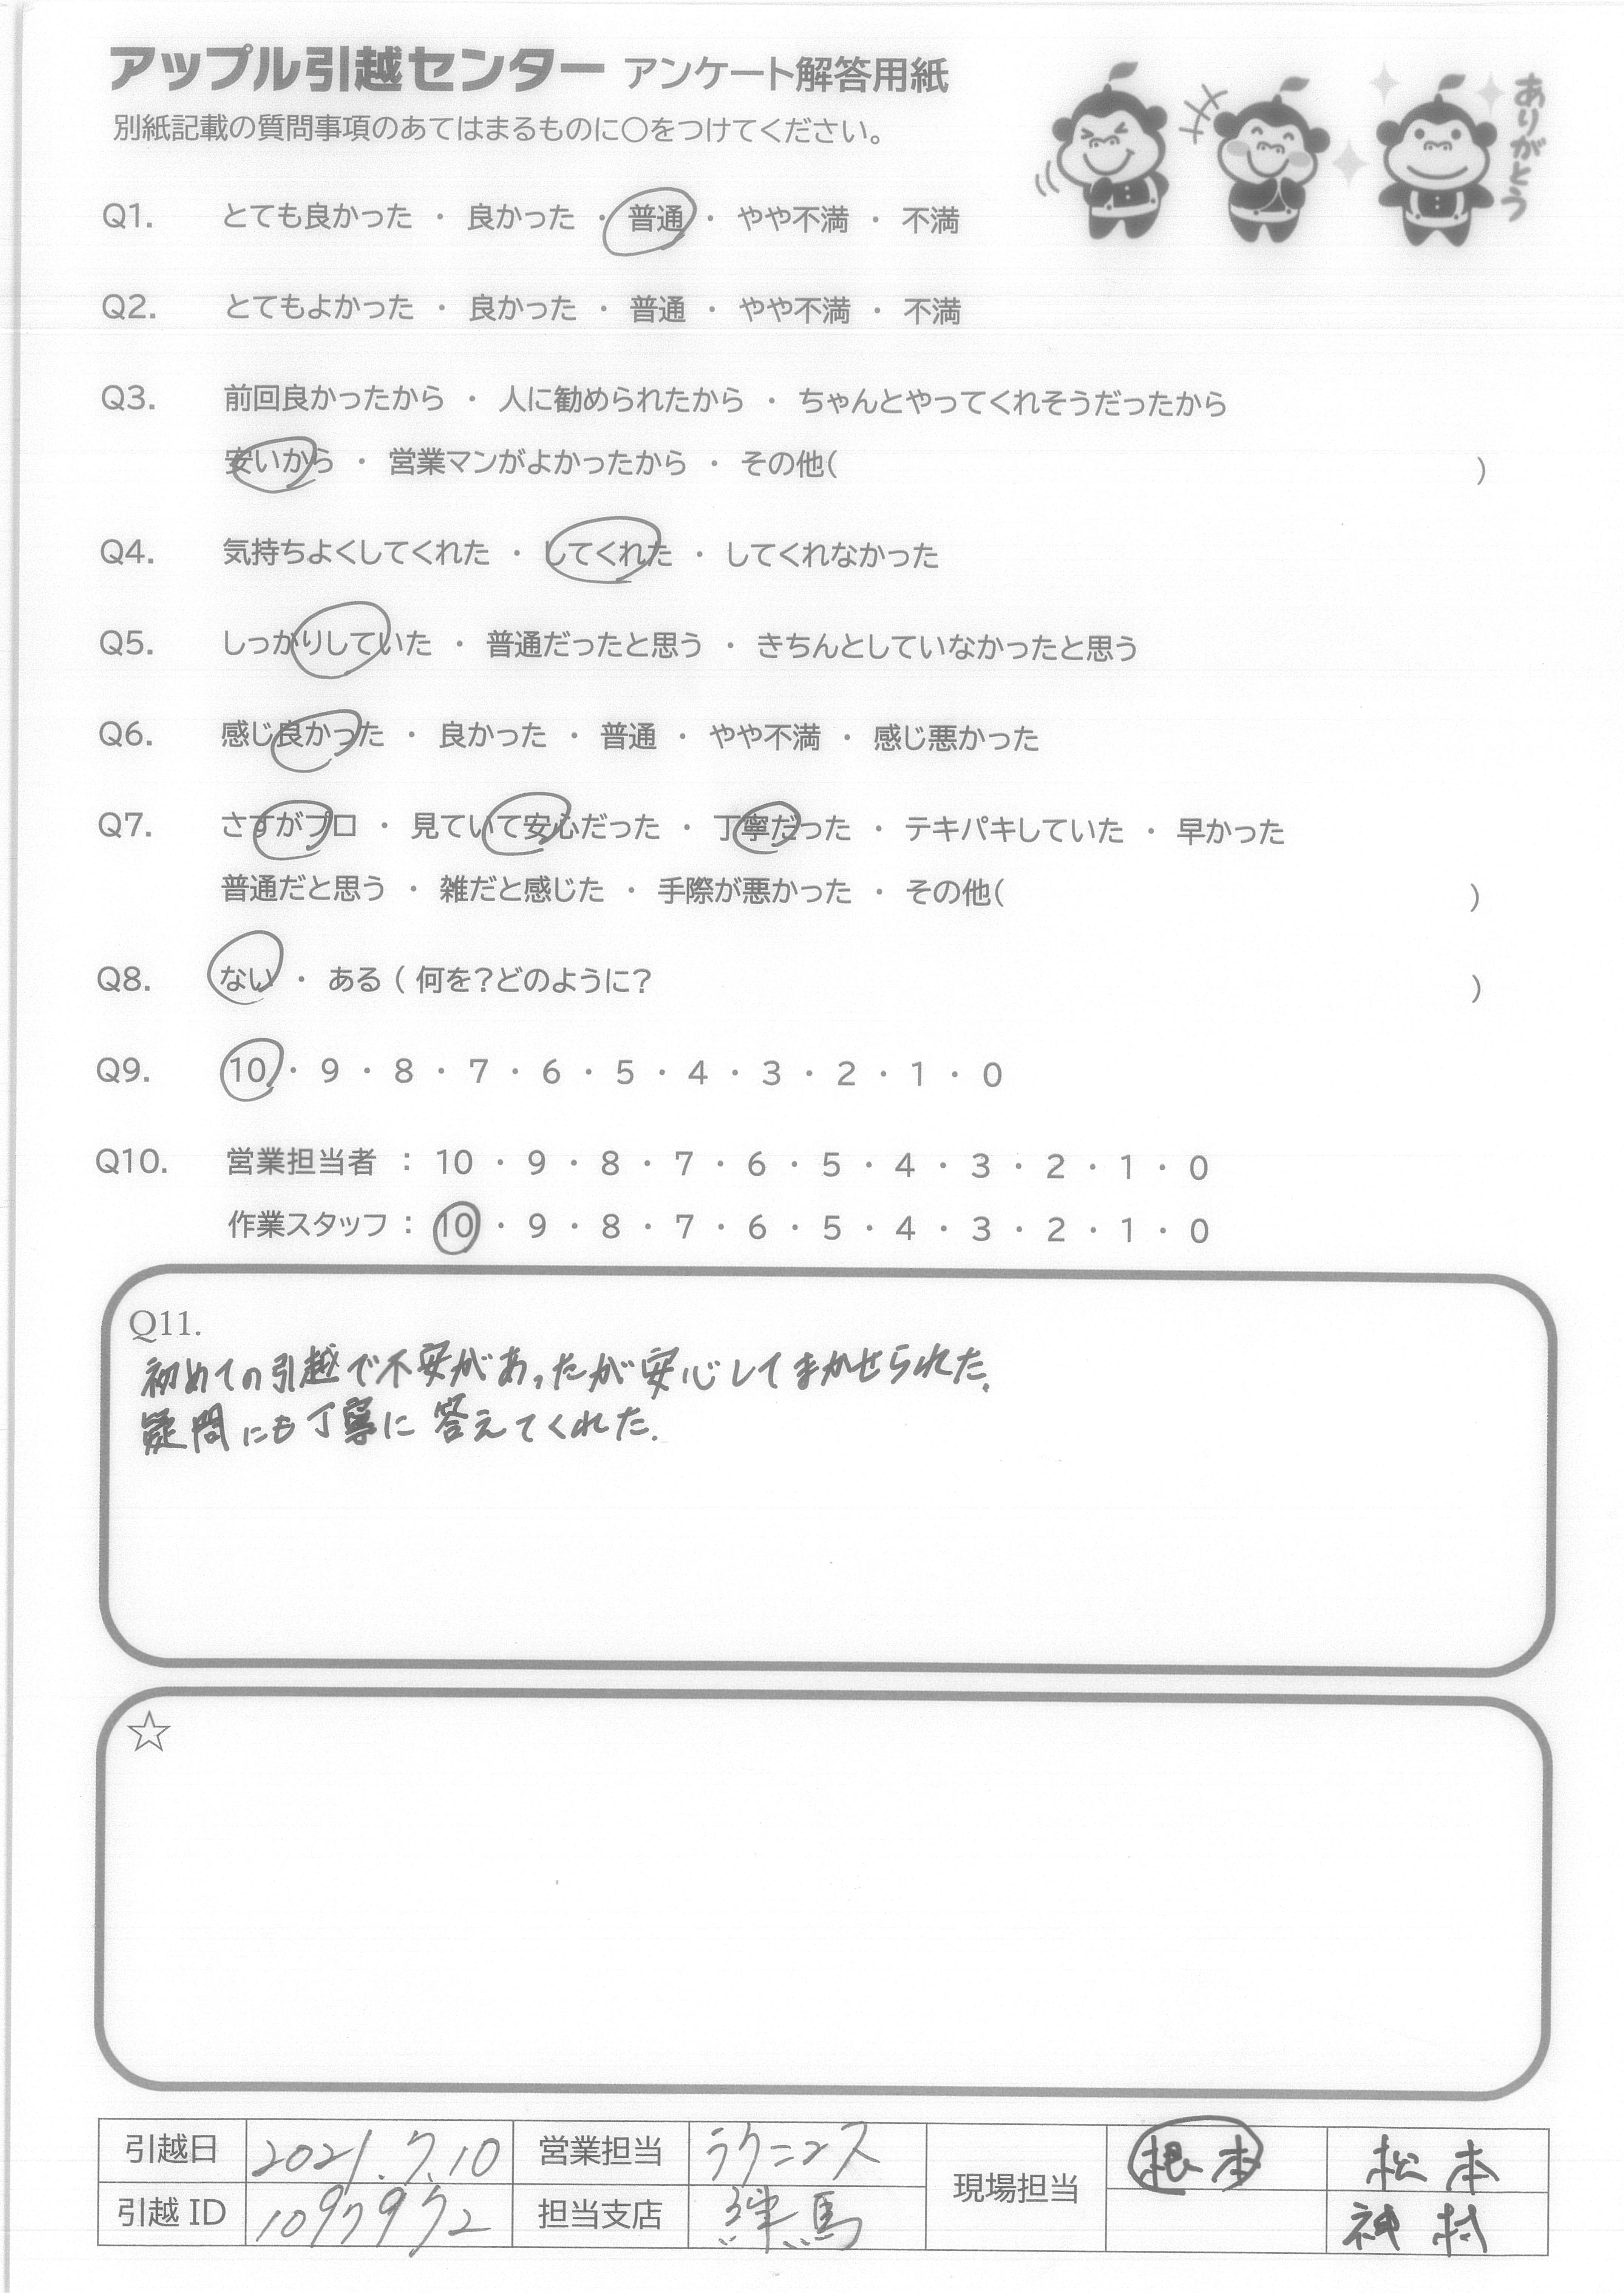 アップル引越センター アンケート解答用紙
別紙記載の質問事項のあてはまるものに○をつけてください。
ありがとう
Q1. とても良かった ・ 良かった ・ 普通 ・ やや不満 ・ 不満
Q2. とてもよかった ・ 良かった ・ 普通 ・ やや不満 ・ 不満
Q3. 前回良かったから ・ 人に勧められたから ・ ちゃんとやってくれそうだったから
安いから ・ 営業マンがよかったから ・ その他( )
Q4. 気持ちよくしてくれた ・ してくれた ・ してくれなかった
Q5. しっかりしていた ・ 普通だったと思う ・ きちんとしていなかったと思う
Q6. 感じ良かった ・ 良かった ・ 普通 ・ やや不満 ・ 感じ悪かった
Q7. さすがプロ ・ 見ていて安心だった ・ 丁寧だった ・ テキパキしていた ・ 早かった
普通だと思う ・ 雑だと感じた ・ 手際が悪かった ・ その他( )
Q8. ない ・ ある ( 何を?どのように? )
Q9. 10 ・ 9 ・ 8 ・ 7 ・ 6 ・ 5 ・ 4 ・ 3 ・ 2 ・ 1 ・ 0
Q10. 営業担当者 : 10 ・ 9 ・ 8 ・ 7 ・ 6 ・ 5 ・ 4 ・ 3 ・ 2 ・ 1 ・ 0
作業スタッフ : 10 ・ 9 ・ 8 ・ 7 ・ 6 ・ 5 ・ 4 ・ 3 ・ 2 ・ 1 ・ 0
Q11.
初めての引越で不安があったが安心してまかせられた。
疑問にも丁寧に答えてくれた.
☆
引越日 2021.7.10 営業担当 ラクニコス 現場担当 根本 松本
引越 ID 1097972 担当支店 練馬 神村